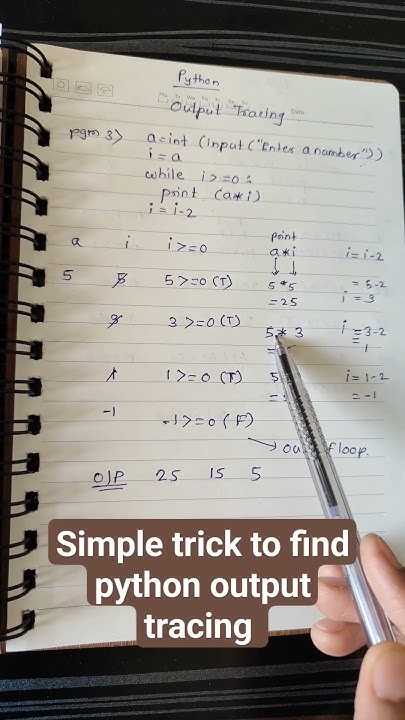 Python
Output Tracing
pgm 3) a=int (input("Enter a number"))
i = a
while i >=0 :
print (a*i)
i = i-2
print
a i i >=0 a*i i = i-2
5 5 5 >=0 (T) 5 * 5 = 5-2
= 25 i = 3
3 3 >=0 (T) 5 * 3 i = 3-2
= 1
1 1 >=0 (T) 5 i = 1-2
= = -1
-1 -1 >=0 (F)
loop.
O/P 25 15 5
Simple trick to find
python output
tracing